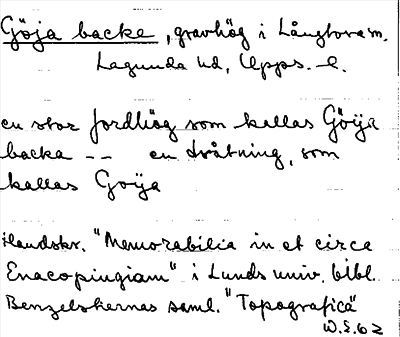 Göja backe, gravhög i Långtora sn.
Lagunda hd, Upps. l.
en stor jordhög som kallas Göÿa
backa -- en dråtning, som
kallas Goÿa
Handskr. "Memorabilia in et circa
Enacopingiam" i Lunds univ. bibl.
Benzelskernas saml. "Topografica"
W.E. 62